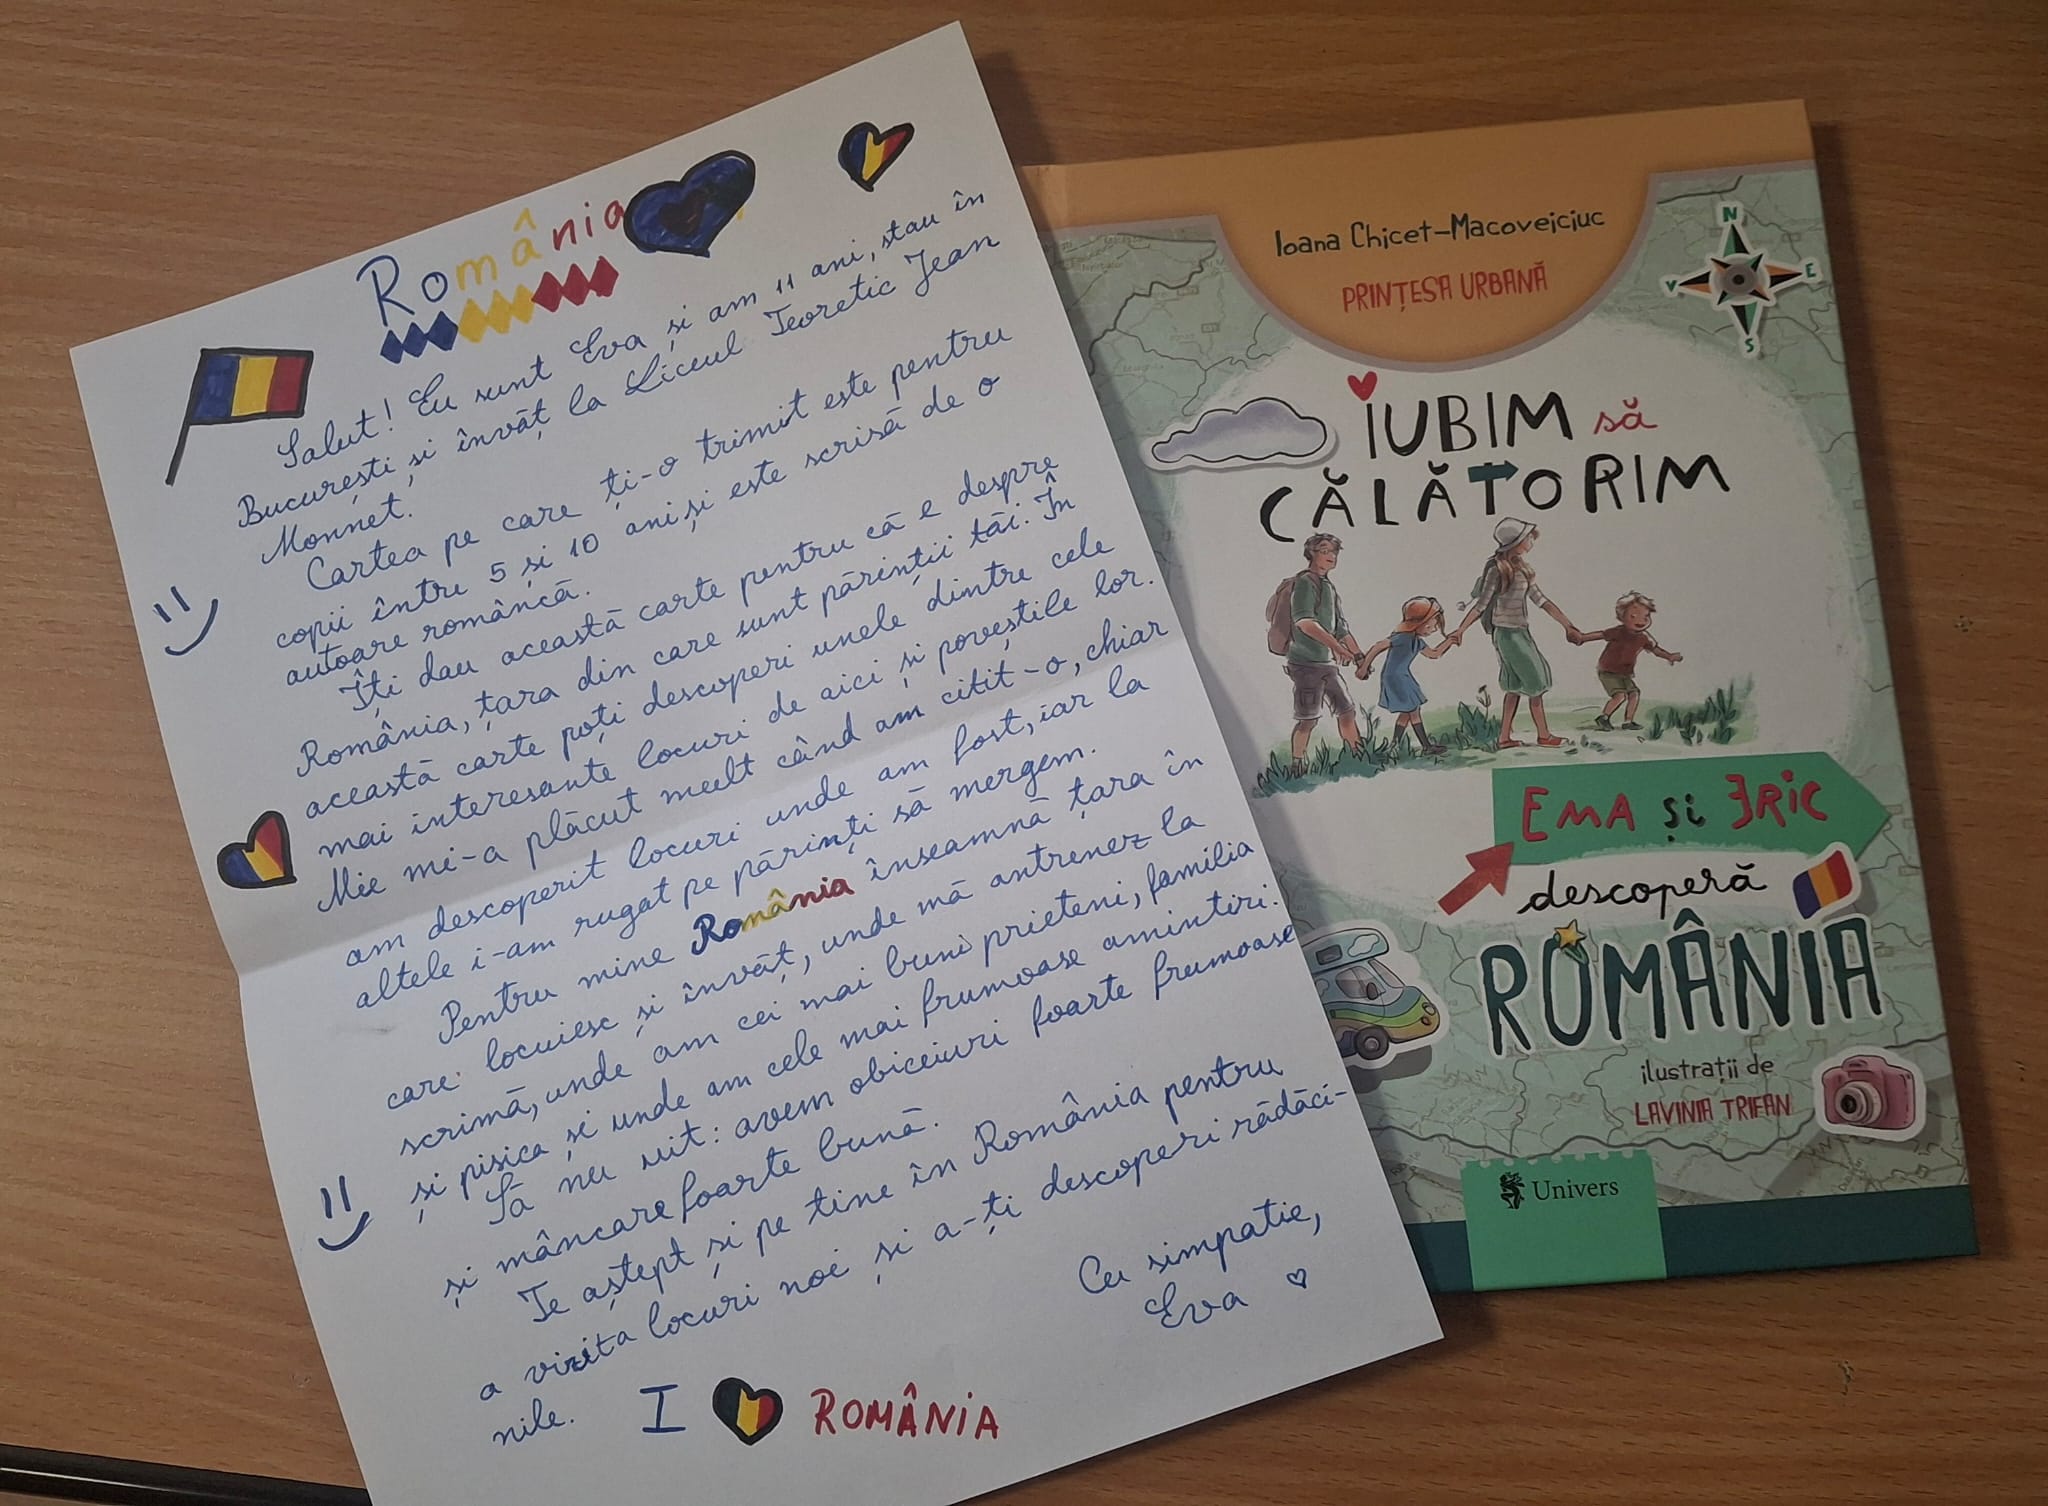 România
Salut! Eu sunt Eva și am 11 ani, stau în
București și învăț la Liceul Teoretic Jean
Monnet.
Cartea pe care ți-o trimit este pentru
copii între 5 și 10 ani și este scrisă de o
autoare româncă.
Îți dau această carte pentru că e despre
România, țara din care sunt părinții tăi. În
această carte poți descoperi unele dintre cele
mai interesante locuri de aici și poveștile lor.
Mie mi-a plăcut mult când am citit-o, chiar
am descoperit locuri unde am fost, iar la
altele i-am rugat pe părinți să mergem.
Pentru mine România înseamnă țara în
care locuiesc și învăț, unde mă antrenez la
scrimă, unde am cei mai buni prieteni, familia
și pisica și unde am cele mai frumoase amintiri.
Să nu uit: avem obiceiuri foarte frumoase
și mâncare foarte bună.
Te aștept și pe tine în România pentru
a vizita locuri noi și a-ți descoperi rădăci-
nile.
Cu simpatie,
Eva
I ROMÂNIA
Ioana Chicet-Macoveiciuc
PRINȚESA URBANĂ
N
V
E
S
IUBIM să
CĂLĂTORIM
EMA și ERIC
descoperă
ROMÂNIA
ilustrații de
LAVINIA TRIFAN
Univers